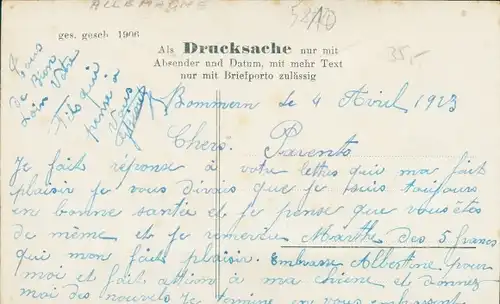 ALLEMAGNE
ges. gesch. 1906
Als Drucksache nur mit
Absender und Datum, mit mehr Text
nur mit Briefporto zulässig
35,-
de Bien
loin Votre
Fils qui
pense à
Vous
Bommern le 4 Avril 1923
Chers Parents
Je faits réponse à votre lettres qui ma fait
plaisir je vous dirais que je suis toujours
en bonne santie et je pense que vous êtes
de même et je remercie Marthe des 5 francs
qui mon faits plaisir. Embrasse Albertine pour
moi et fait attion à ma chiene et donnez
moi des nouvels Je termine en vous